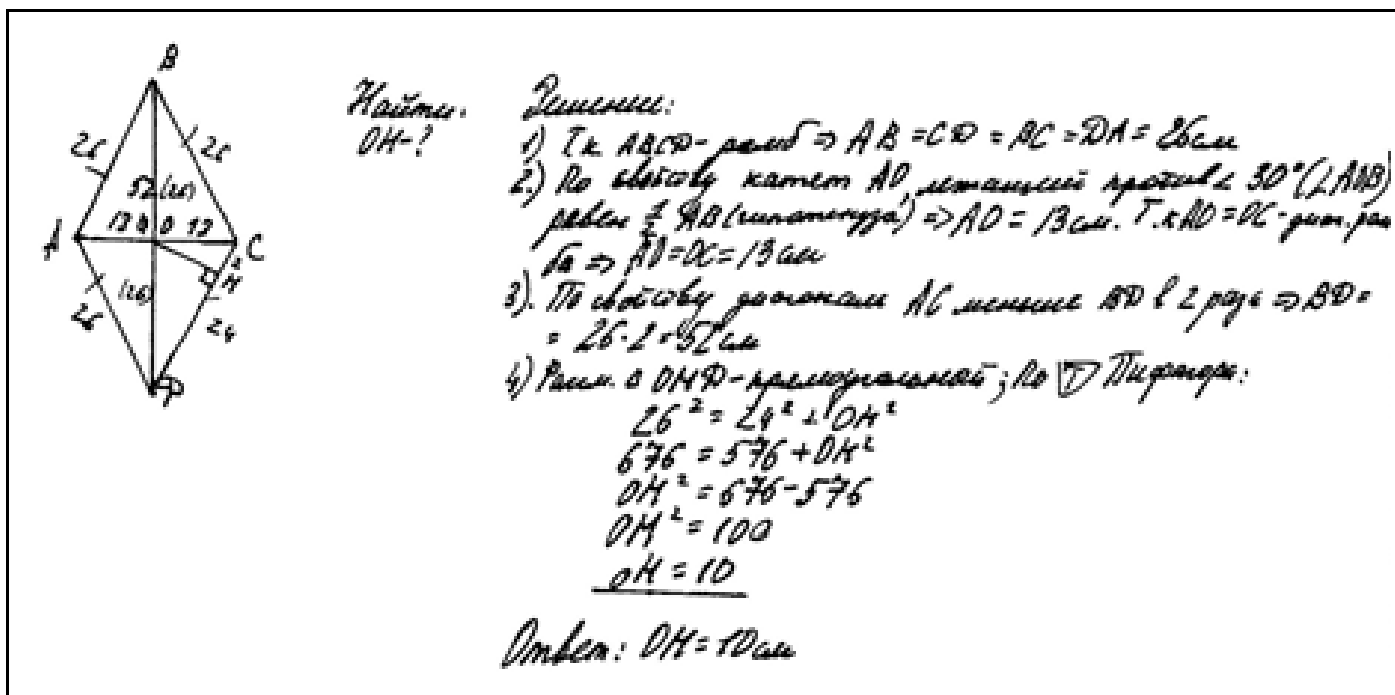 B
26
26
52(см)
A
13
O
13
C
2
H
(26)
26
24
D
Найти.
OH-?
Решение:
1) Т.к ABCD-ромб ⇒ AB=CD=BC=DA=26см
2.) По свойству катет AO, лежащий против ∠30°(∠ABO)
равен ½ AB(гипотенуза) ⇒ AO=13см. Т.к AO=OC-диаг.ром
ба ⇒ AO=OC=13см
3). По свойству диагонали AC меньше BD в 2 раза ⇒ BD=
=26·2=52см
4) Рассм. △ OHD-прямоугольной; По Т Пифагора:
26²=24²+OH²
676=576+OH²
OH²=676-576
OH²=100
OH=10
Ответ: OH=10см